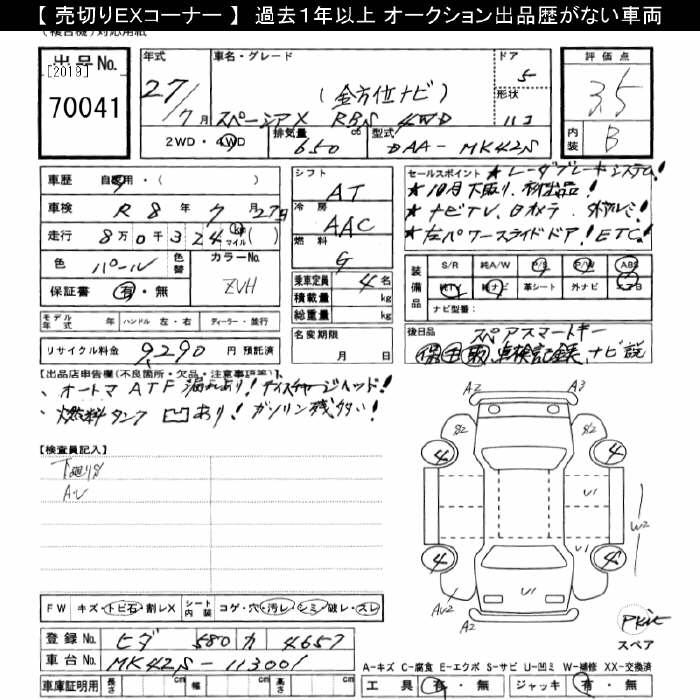 【 売切りEXコーナー 】 過去１年以上 オークション出品歴がない車両
(複合機)対応用紙
出品No.
[2019]
70041
年式
27/7月
車名・グレード
(全方位ナビ)
スペーシア X RBS 4WD
ドア
5
形状
2WD・4WD
排気量
650 cc
型式
DAA- MK42S
評価点
3.5
内装
B
車歴 自家用・( )
車検 R 8 年 7 月 27日
走行 8万0千324 km マイル ( )
色 パール 色替
カラーNo.
ZVH
保証書 有・無
シフト
AT
冷房
AAC
燃料
G
乗車定員 4 名
積載量 kg
総重量 kg
セールスポイント ★レーダブレーキシステム!
★10月下取り、初出品!
★ナビTV、Bカメラ、外アルミ!
★左パワースライドドア! ETC!
装備品
S/R 純A/W P/S P/W ABS
純TV 純ナビ 革シート 外ナビ エアB
ナビ型番:
モデル年式 年 ハンドル 左・右 ディーラー・並行
リサイクル料金 9290 円 預託済
名変期限
月 日
後日品 スペアスマートキー
保 取 点検記録、ナビ説
【出品店申告欄(不良箇所・欠品・注意事項等)】
、オートマATF漏れあり! ディスチャージヘッド!
、燃料タンク凹あり! ガソリン残多い!
【検査員記入】
下廻りS
AU
FW キズ・トビ石・割レX
シート内装 コゲ・穴・汚レ・シミ・破レ・スレ
A2
A3
S2
S2
4
4
U1
W2
4
4
U1
U1
AU2
A2
Pkie
スペア
登録No. ヒダ 580 カ 4657
車台No. MK42S - 113001
車庫証明用 長さ cm 幅 cm 高さ cm
A-キズ C-腐食 E-エクボ S-サビ U-凹ミ W-補修 XX-交換済
工具 有・無 ジャッキ 有・無